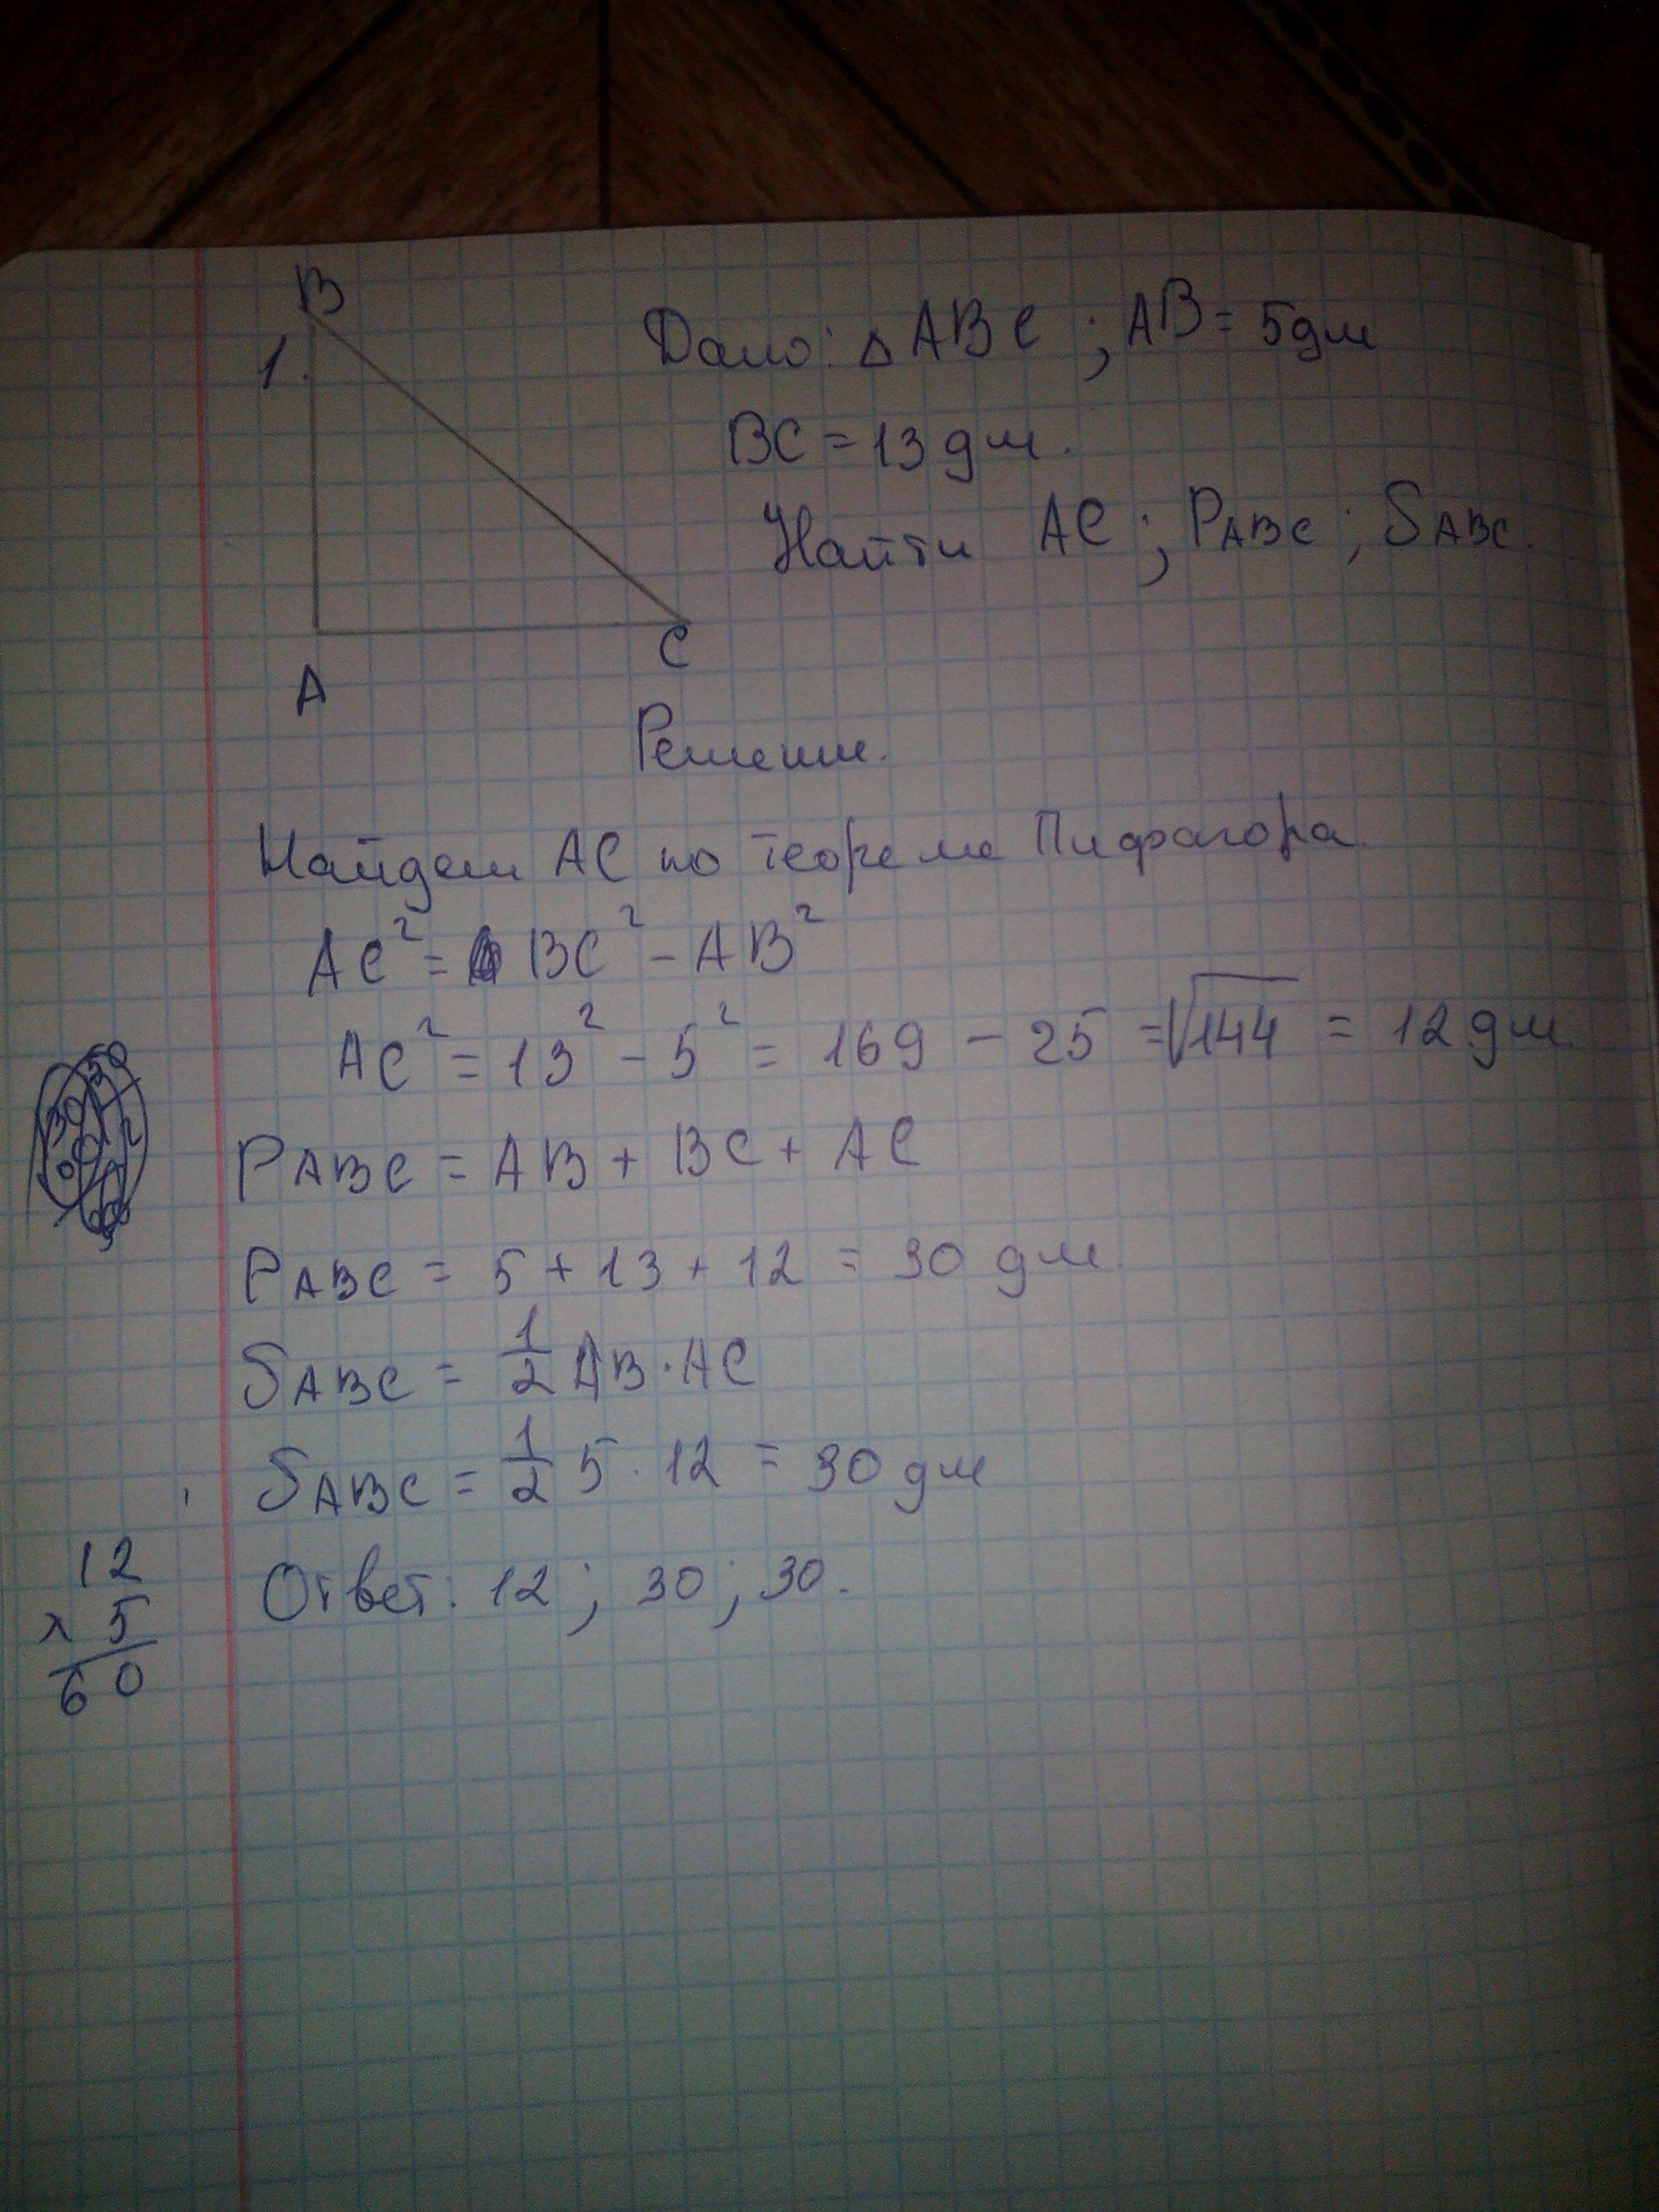 B
1.
A
C
Дано: △ABC ; AB = 5дм
BC = 13 дм.
Найти AC ; PABC ; SABC.
Решение.
Найдем AC по теореме Пифагора.
AC² = BC² - AB²
AC² = 13² - 5² = 169 - 25 = √144 = 12 дм.
PABC = AB + BC + AC
PABC = 5 + 13 + 12 = 30 дм.
SABC = 1/2 AB · AC
SABC = 1/2 5 · 12 = 30 дм
Ответ: 12 ; 30 ; 30.
12
x 5
60